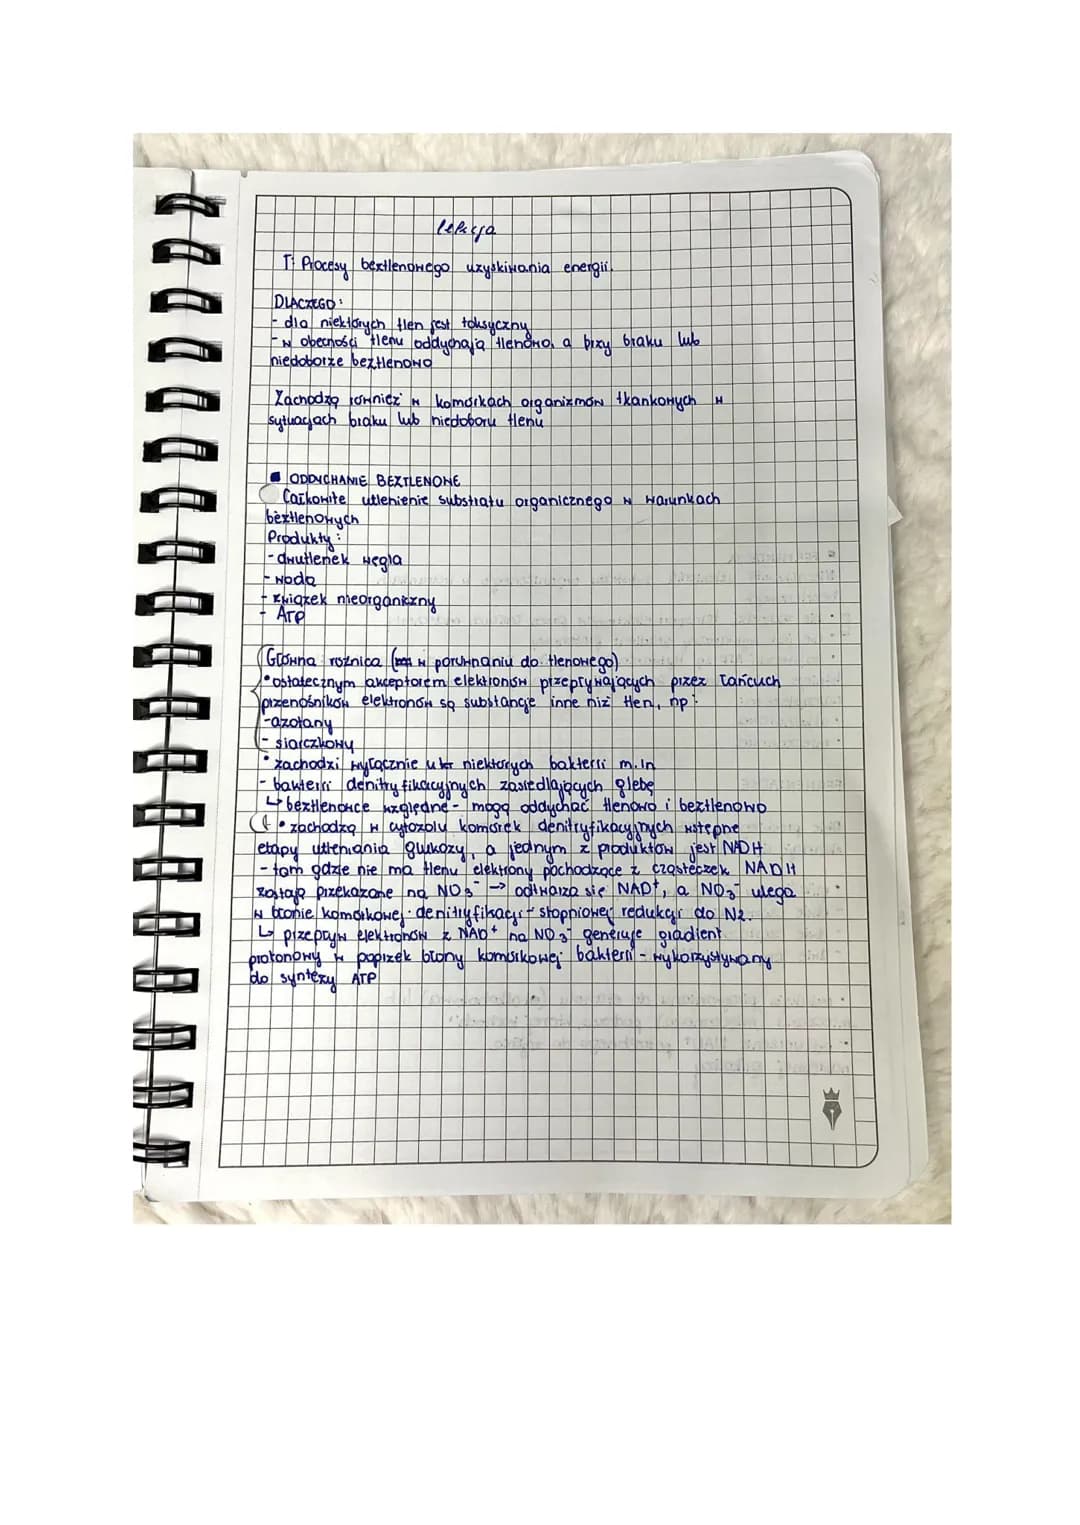 lekcja
T: Procesy beztlenowego uzyskiwania energii.
DLACZEGO:
- dla niektórych tlen jest toksyczny
- w obecności tlenu oddychają tlenowo, a przy braku lub
niedoborze beztlenowo
Zachodzą również w komórkach organizmów tkankowych w
sytuacjach braku lub niedoboru tlenu
ODDYCHANIE BEZTLENONE
Całkowite utlenienie substratu organicznego w warunkach
beztlenowych
Produkty:
- dwutlenek węgla
- woda
- związek nieorganiczny
- ATP
Główna różnica ( w porównaniu do tlenowego)
• ostatecznym akceptorem elektronów przepływających przez łańcuch
przenośników elektronów są substancje inne niż tlen, np:
- azotany
- siarczkowy
• zachodzi wyłącznie u niektórych bakterii m.in
- bakterii denitryfikacyjnych zasiedlających glebę
↳ beztlenowce względne - mogą oddychać tlenowo i beztlenowo
• zachodzą w cytozolu komórek denitryfikacyjnych wstępne
etapy utleniania glukozy, a jednym z produktów jest NADH
- tam gdzie nie ma tlenu elektrony pochodzące z cząsteczek NADH
zostają przekazane na NO3⁻ → odtwarza się NAD⁺, a NO3⁻ ulega
w błonie komórkowej denitryfikacji - stopniowej redukcji do N2.
↳ przepływ elektronów z NAD⁺ na NO3⁻ generuje gradient
protonowy w poprzek błony komórkowej bakterii - wykorzystywany
do syntezy ATP